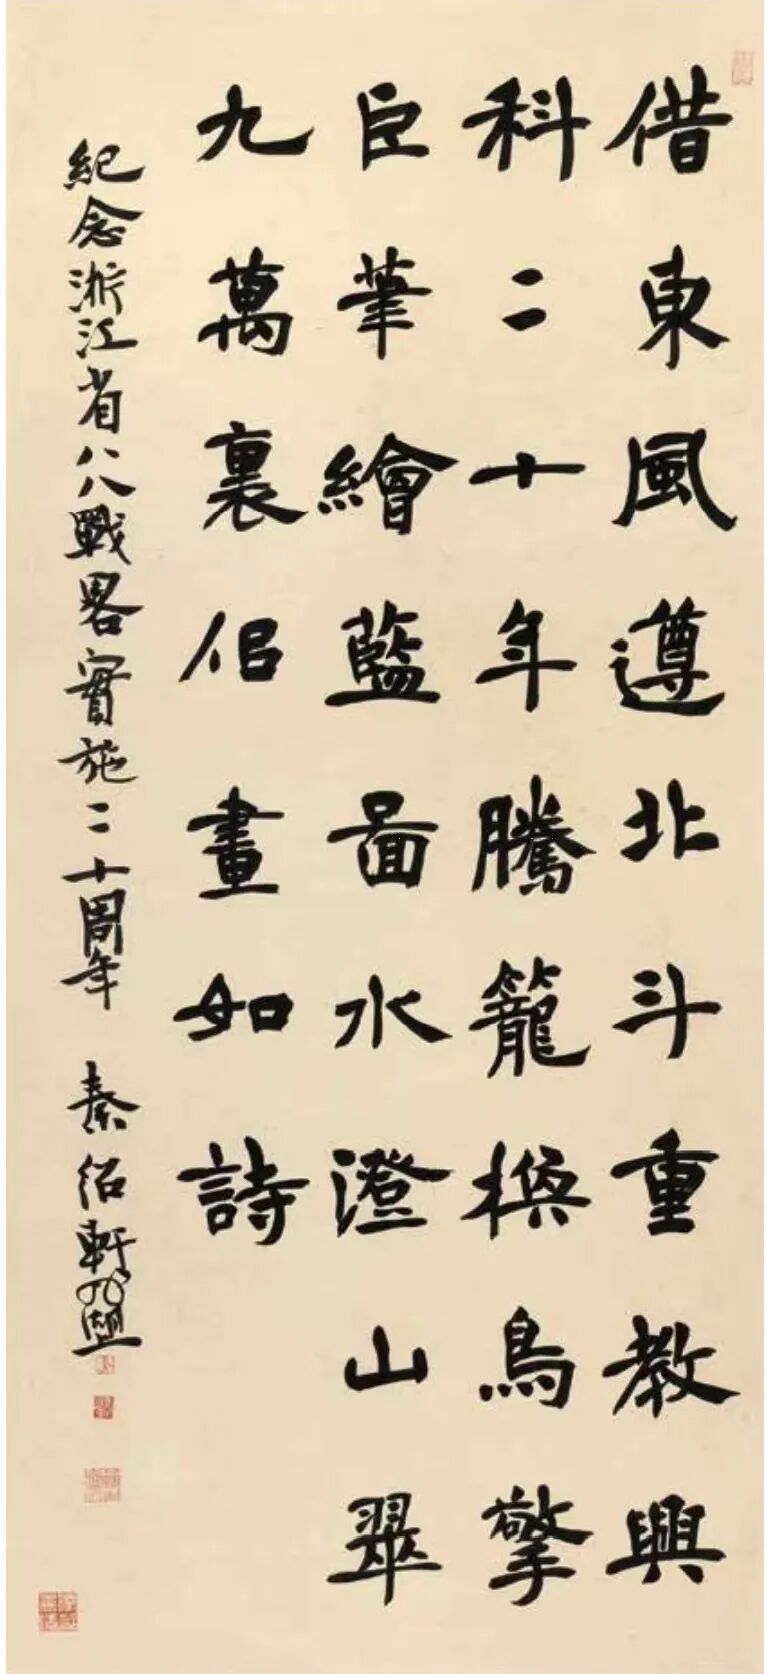 借東風遵北斗重教興
科二十年騰籠換鳥擎
巨筆繪藍圖水澄山翠
九萬裏佀畫如詩
紀念浙江省八八戰畧實施二十周年 秦紹軒